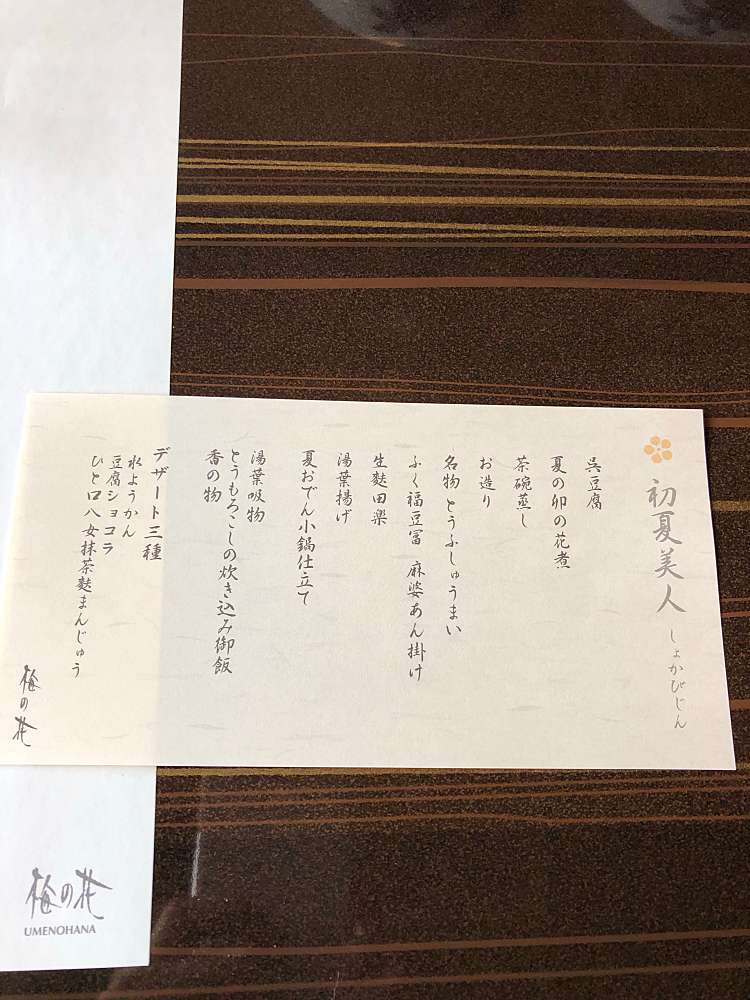 初夏美人 しょかびじん
呉豆腐
夏の卯の花煮
茶碗蒸し
お造り
名物 とうふしゅうまい
ふく福豆冨 麻婆あん掛け
生麩田楽
湯葉揚げ
夏おでん小鍋仕立て
湯葉吸物
とうもろこしの炊き込み御飯
香の物
デザート三種
水ようかん
豆腐ショコラ
ひと口八女抹茶麩まんじゅう
梅の花
梅の花
UMENOHANA